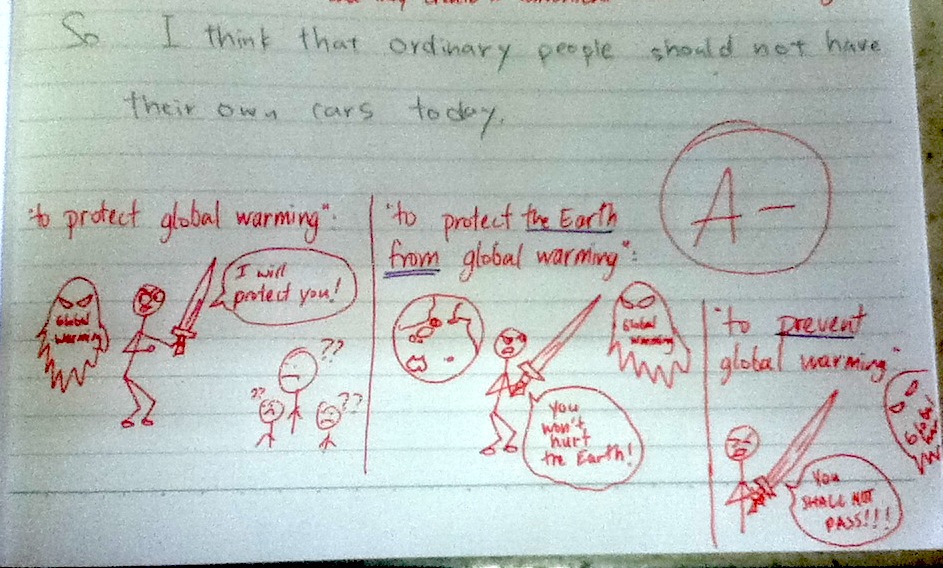 So I think that ordinary people should not have
their own cars today.
A-
"to protect global warming":
I will
protect you!
Global
Warming
??
??
??
"to protect the Earth
from global warming":
Global
Warming
You
won't
hurt
the Earth!
"to prevent
global warming"
You
SHALL NOT
PASS!!!